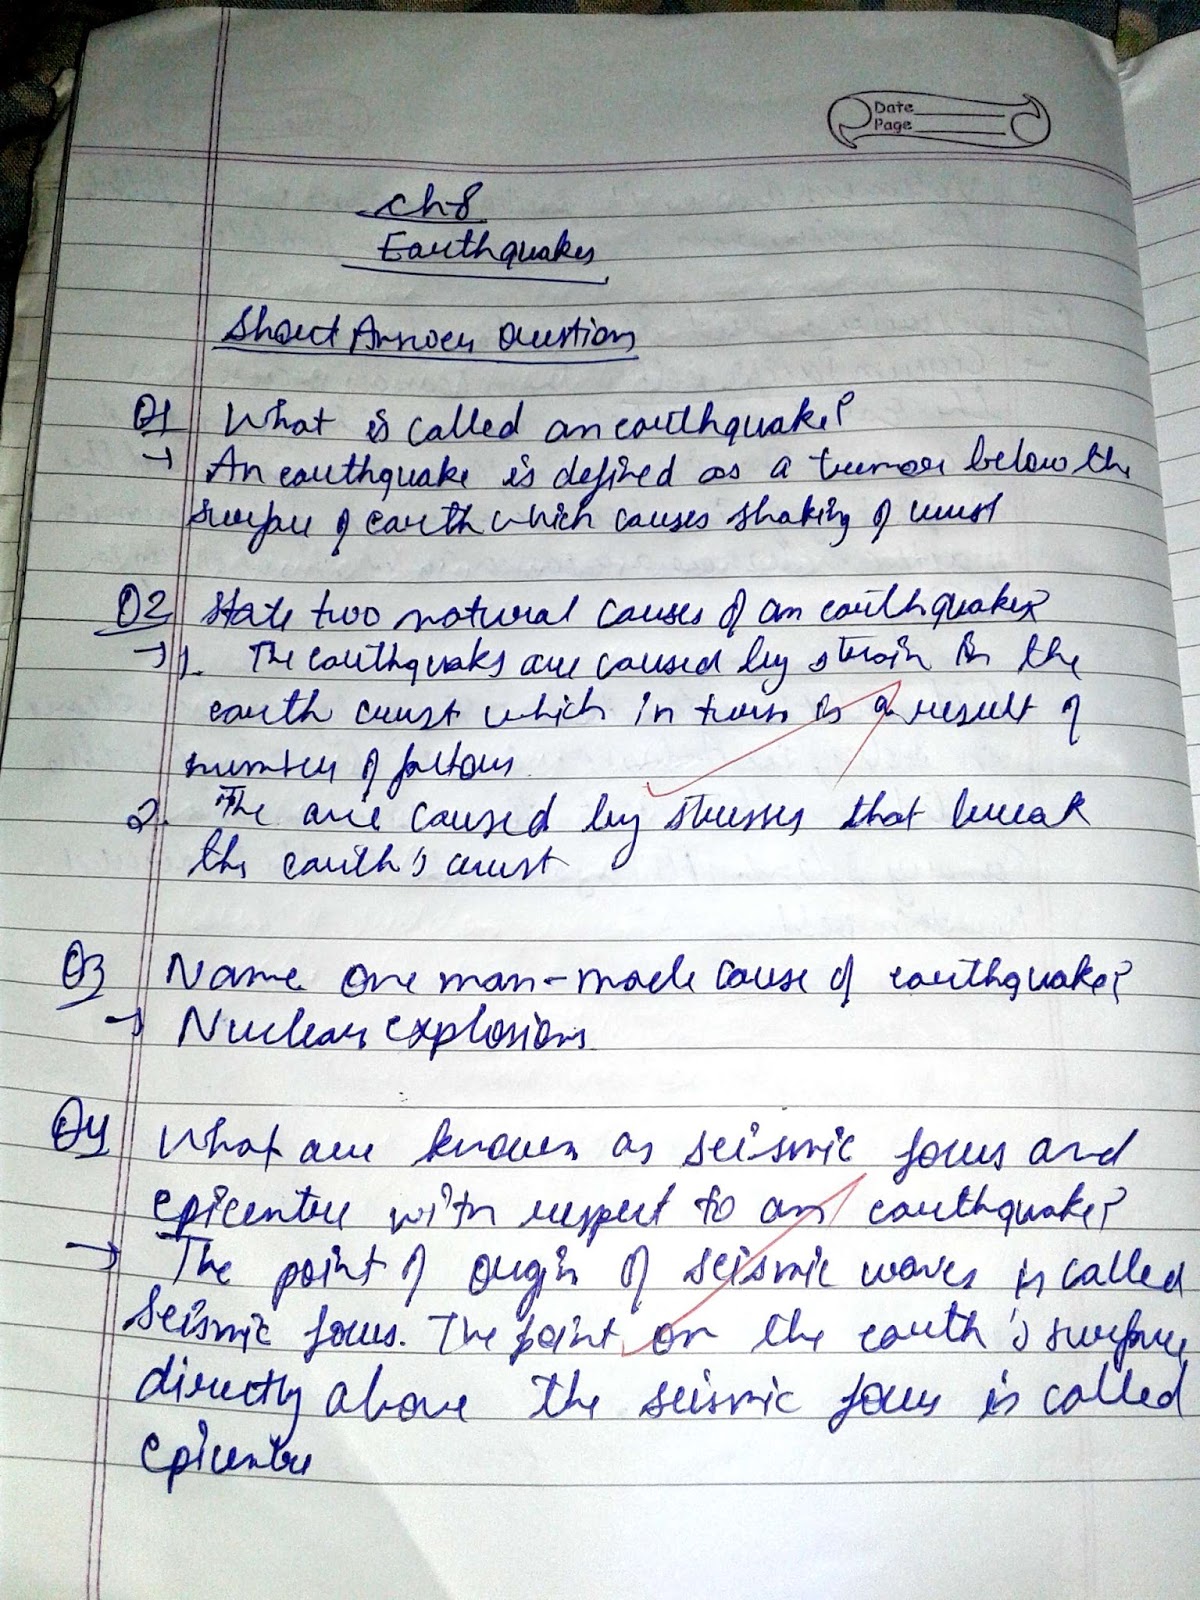 Date
Page
Ch-8
Earthquakes
Short Answer Question
Q1 What is called an earthquake?
→ An earthquake is defined as a tremor below the
surface of earth which causes shaking of crust
Q2 State two natural causes of an earthquake?
→ 1. The earthquaks are caused by strain in the
earth crust which in turn is a result of
number of factors.
2. The are caused by stresses that break
the earth's crust
Q3 Name one man-made cause of earthquake?
→ Nuclear explosions
Q4 What are known as seismic focus and
epicentre with respect to an earthquake?
→ The point of origin of seismic waves is called
seismic focus. The point on the earth's surface
directly above the seismic focus is called
epicentre